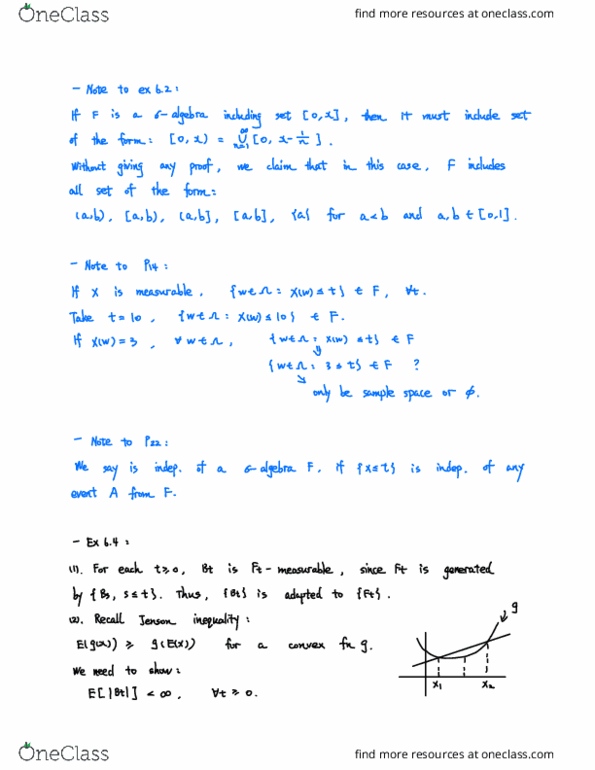 OneClass
find more resources at oneclass.com
- Note to ex 6.2 :
If F is a σ-algebra including set [0,x], then it must include set
of the form : [0,x) = ∪_{n=1}^{∞} [0, x-1/n ].
Without giving any proof, we claim that in this case, F includes
all set of the form :
(a,b), [a,b), (a,b], [a,b], {a} for a<b and a,b ∈ [0,1].
- Note to P14 :
If X is measurable, {w∈Ω : X(w) ≤ t} ∈ F, ∀t.
Take t = 10, {w∈Ω : X(w) ≤ 10} ∈ F.
If X(w) = 3, ∀ w∈Ω, {w∈Ω : X(w) ≤ t} ∈ F
⇓
{w∈Ω : 3 ≤ t} ∈ F ?
⇘
only be sample space or ∅.
- Note to P22 :
We say is indep. of a σ-algebra F, if {X≤t} is indep. of any
event A from F.
- Ex 6.4 :
(1). For each t≥0, Bt is Ft-measurable, since Ft is generated
by {Bs, s≤t}. Thus, {Bt} is adapted to {Ft}.
(2). Recall Jenson inequality :
E(g(x)) ≥ g(E(x)) for a convex fn g.
We need to show :
E[|Bt|] < ∞, ∀t ≥ 0.
g
x1 x2
OneClass
find more resources at oneclass.com